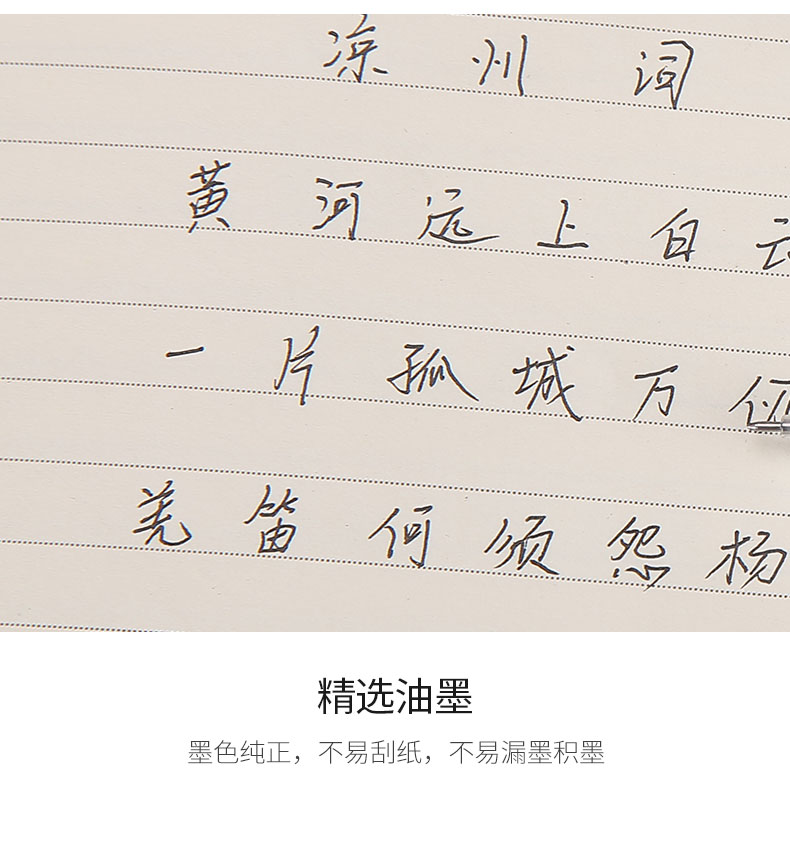 凉州词
黄河远上白
一片孤城万
羌笛何须怨杨
精选油墨
墨色纯正，不易刮纸，不易漏墨积墨